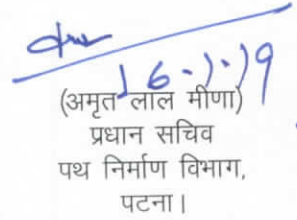 16.1.19
(अमृत लाल मीणा)
प्रधान सचिव
पथ निर्माण विभाग,
पटना।